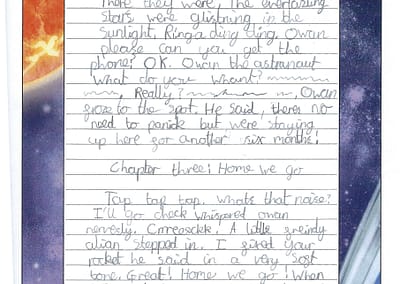 There they were, The everlasting
stars were glistning in the
sunlight, Ring a ding ding. Owan
please can you get the
phone? OK. Owan the astranaut
what do you whant?
, Really? , Owan
froze to the spot. He said, theres no
need to panick but were staying
up here for another six months!
Chapter three: Home we go
Tap tap tap. Whats that noise?
I'll go check whispered owan
nervesly. Crreosckk! A little freindy
alian stepped in. I fixed your
rocket he said in a very soft
tone. Great! Home we go! When